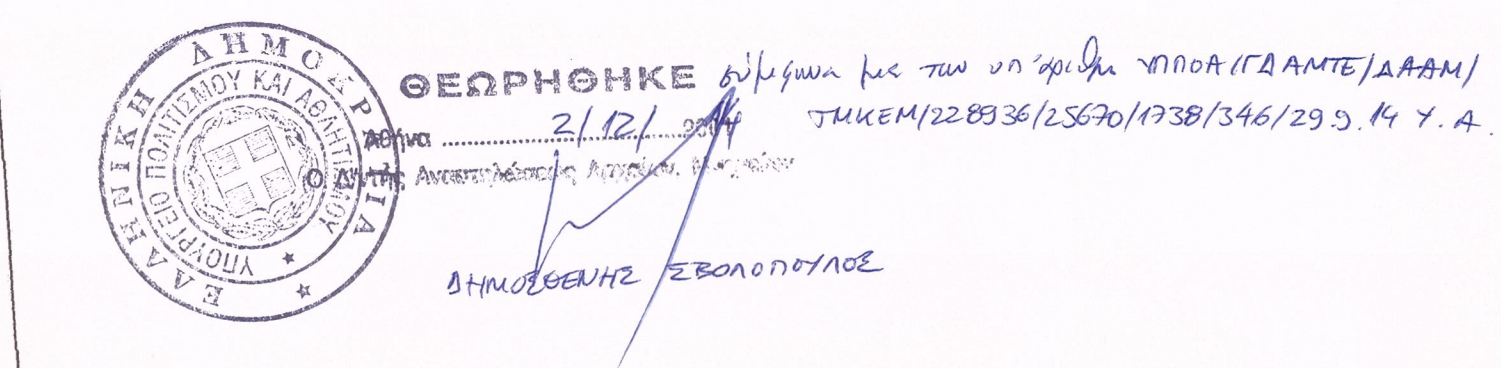 ΕΛΛΗΝΙΚΗ ΔΗΜΟΚΡΑΤΙΑ
ΥΠΟΥΡΓΕΙΟ ΠΟΛΙΤΙΣΜΟΥ ΚΑΙ ΑΘΛΗΤΙΣΜΟΥ
ΘΕΩΡΗΘΗΚΕ σύμφωνα με την υπ' αριθμ ΥΠΠΟΑ/ΓΔΑΜΤΕ/ΔΑΑΜ/
ΤΜΚΕΜ/228936/25670/1738/346/29.9.14 Υ.Α.
Αθήνα 2/12/ 14
Ο Δ/ντής Αναστηλώσεως Αρχαίων Μνημείων
ΔΗΜΟΣΘΕΝΗΣ ΣΒΟΛΟΠΟΥΛΟΣ